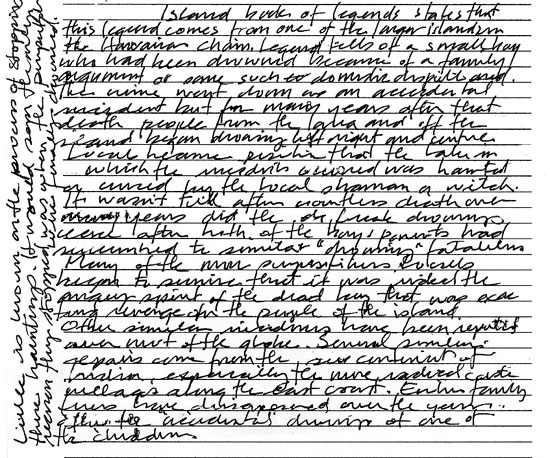 Island book of legends states that
this legend comes from one of the larger islands in
the Hawaiian chain. Legend tells of a small boy
who had been drowned because of a family
argument or some such domestic dispute and
the crime went down as an accidental
incident but for many years after that
death people from the area and off the
island began drowning left right and centre
Local became that the lake in
which the incident occured was haunted
or cursed by the local shaman or witch.
It wasn't till after countless death over
many years did the drowning
cease after both of the boys parents had
succumbed to similar "drowning" fatalities
Many of the more superstitious locals
began to surmise that it was indeed the
angry spirit of the dead boy that was exac
ting revenge on the people of the island
Other similar incidences have been reported
over most of the globe. Several similar
repairs come from the sub continent of
India, especially the more radical caste
villages along the East coast. Entire family
lines have disappeared over the years
after the "accidental" drowning of one of
the children
Little is known on the process of stopping
these hauntings. It would seem the
reason they stopped was when the perpetrators
were themselves drowned.